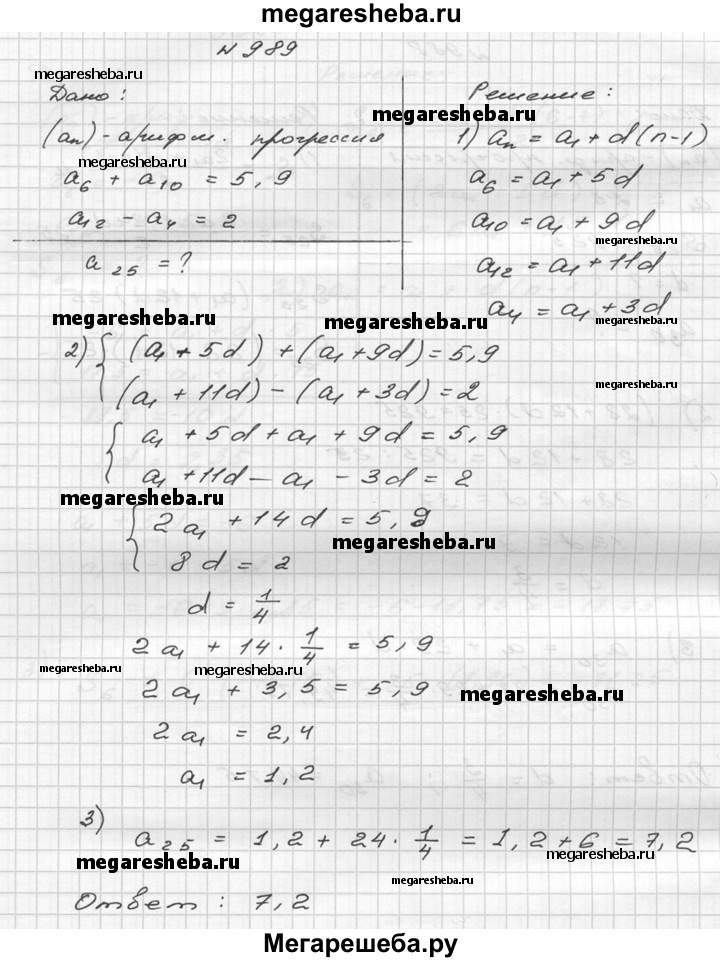 megaresheba.ru
N 989
megaresheba.ru
Дано:
(aₙ) - арифм. прогрессия
megaresheba.ru
a₆ + a₁₀ = 5,9
a₁₂ - a₄ = 2
a₂₅ = ?
Решение:
megaresheba.ru
1) aₙ = a₁ + d(n-1)
a₆ = a₁ + 5d
a₁₀ = a₁ + 9d
megaresheba.ru
a₁₂ = a₁ + 11d
a₄ = a₁ + 3d
megaresheba.ru
megaresheba.ru
megaresheba.ru
2) { (a₁ + 5d) + (a₁ + 9d) = 5,9
(a₁ + 11d) - (a₁ + 3d) = 2
megaresheba.ru
{ a₁ + 5d + a₁ + 9d = 5,9
a₁ + 11d - a₁ - 3d = 2
megaresheba.ru
{ 2a₁ + 14d = 5,9
megaresheba.ru
8d = 2
d = 1/4
2a₁ + 14 · 1/4 = 5,9
megaresheba.ru
megaresheba.ru
2a₁ + 3,5 = 5,9
megaresheba.ru
2a₁ = 2,4
a₁ = 1,2
3) a₂₅ = 1,2 + 24 · 1/4 = 1,2 + 6 = 7,2
megaresheba.ru
megaresheba.ru
megaresheba.ru
Ответ: 7,2
Мегарешеба.ру